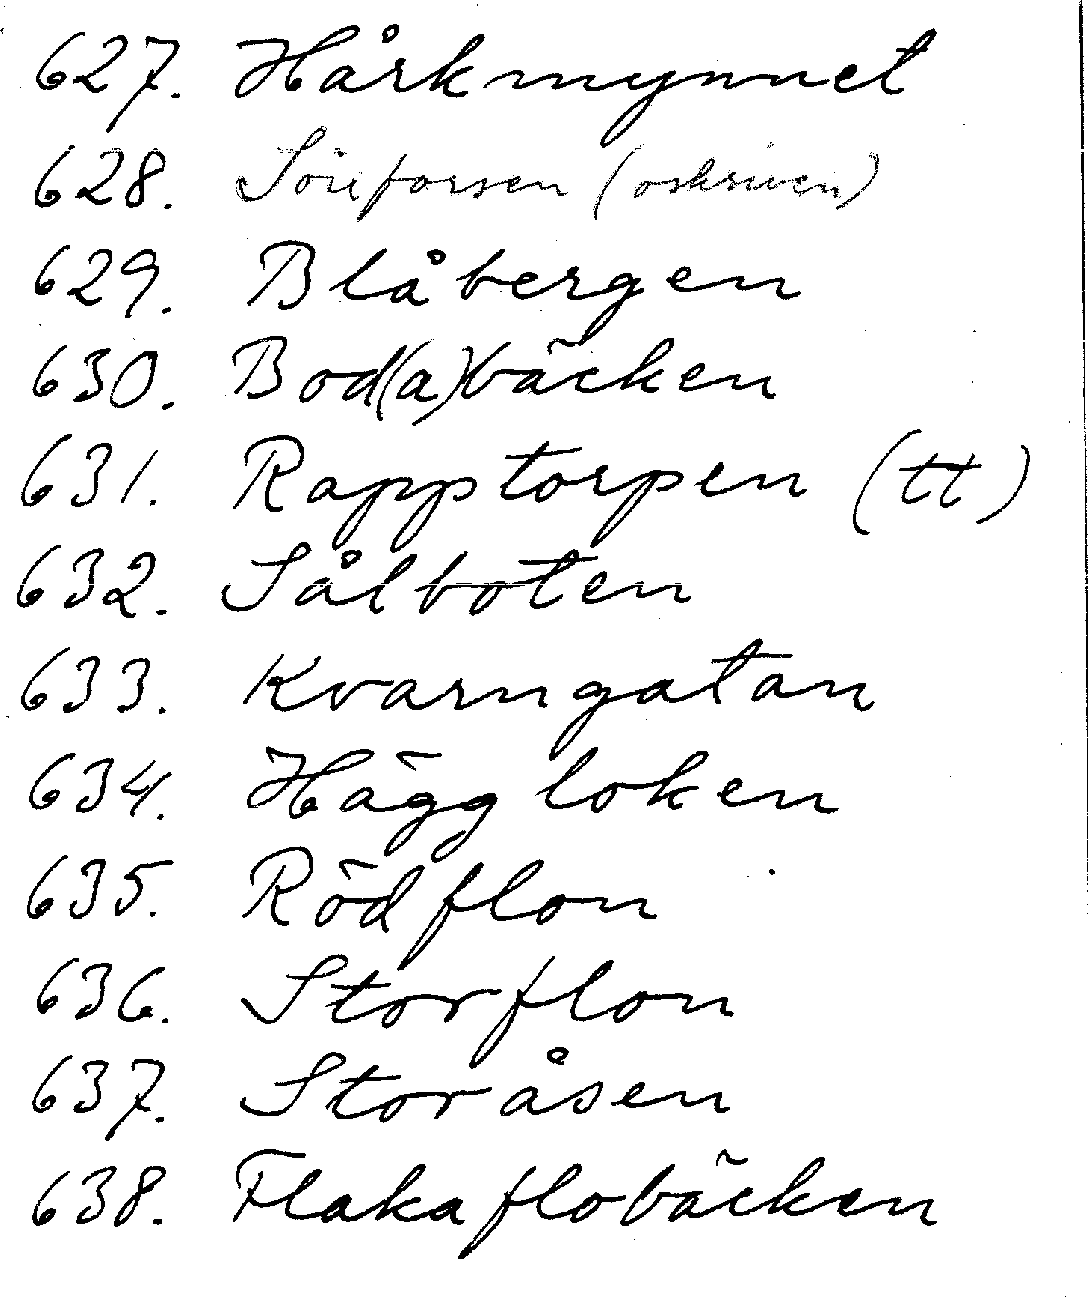 627. Hårkmynnet
628. Sörforsen (oskriven)
629. Blåbergen
630. Bod(a)bäcken
631. Rapptorpen (tt)
632. Sålboten
633. Kvarngatan
634. Häggloken
635. Rödflon
636. Storflon
637. Storåsen
638. Flakaflobäcken